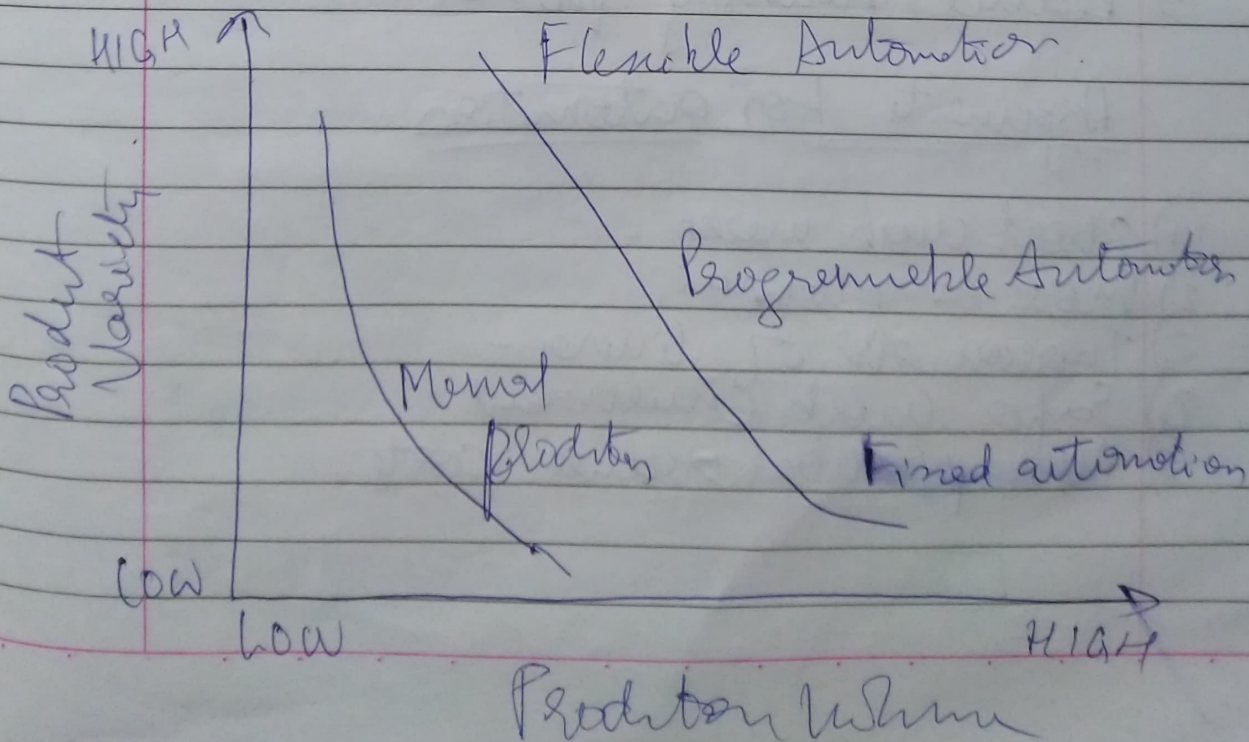 HIGH
Flexible Automation
Product
Variety
Programmable Automation
Manual
Production
Fixed automation
LOW
LOW
HIGH
Production Volume